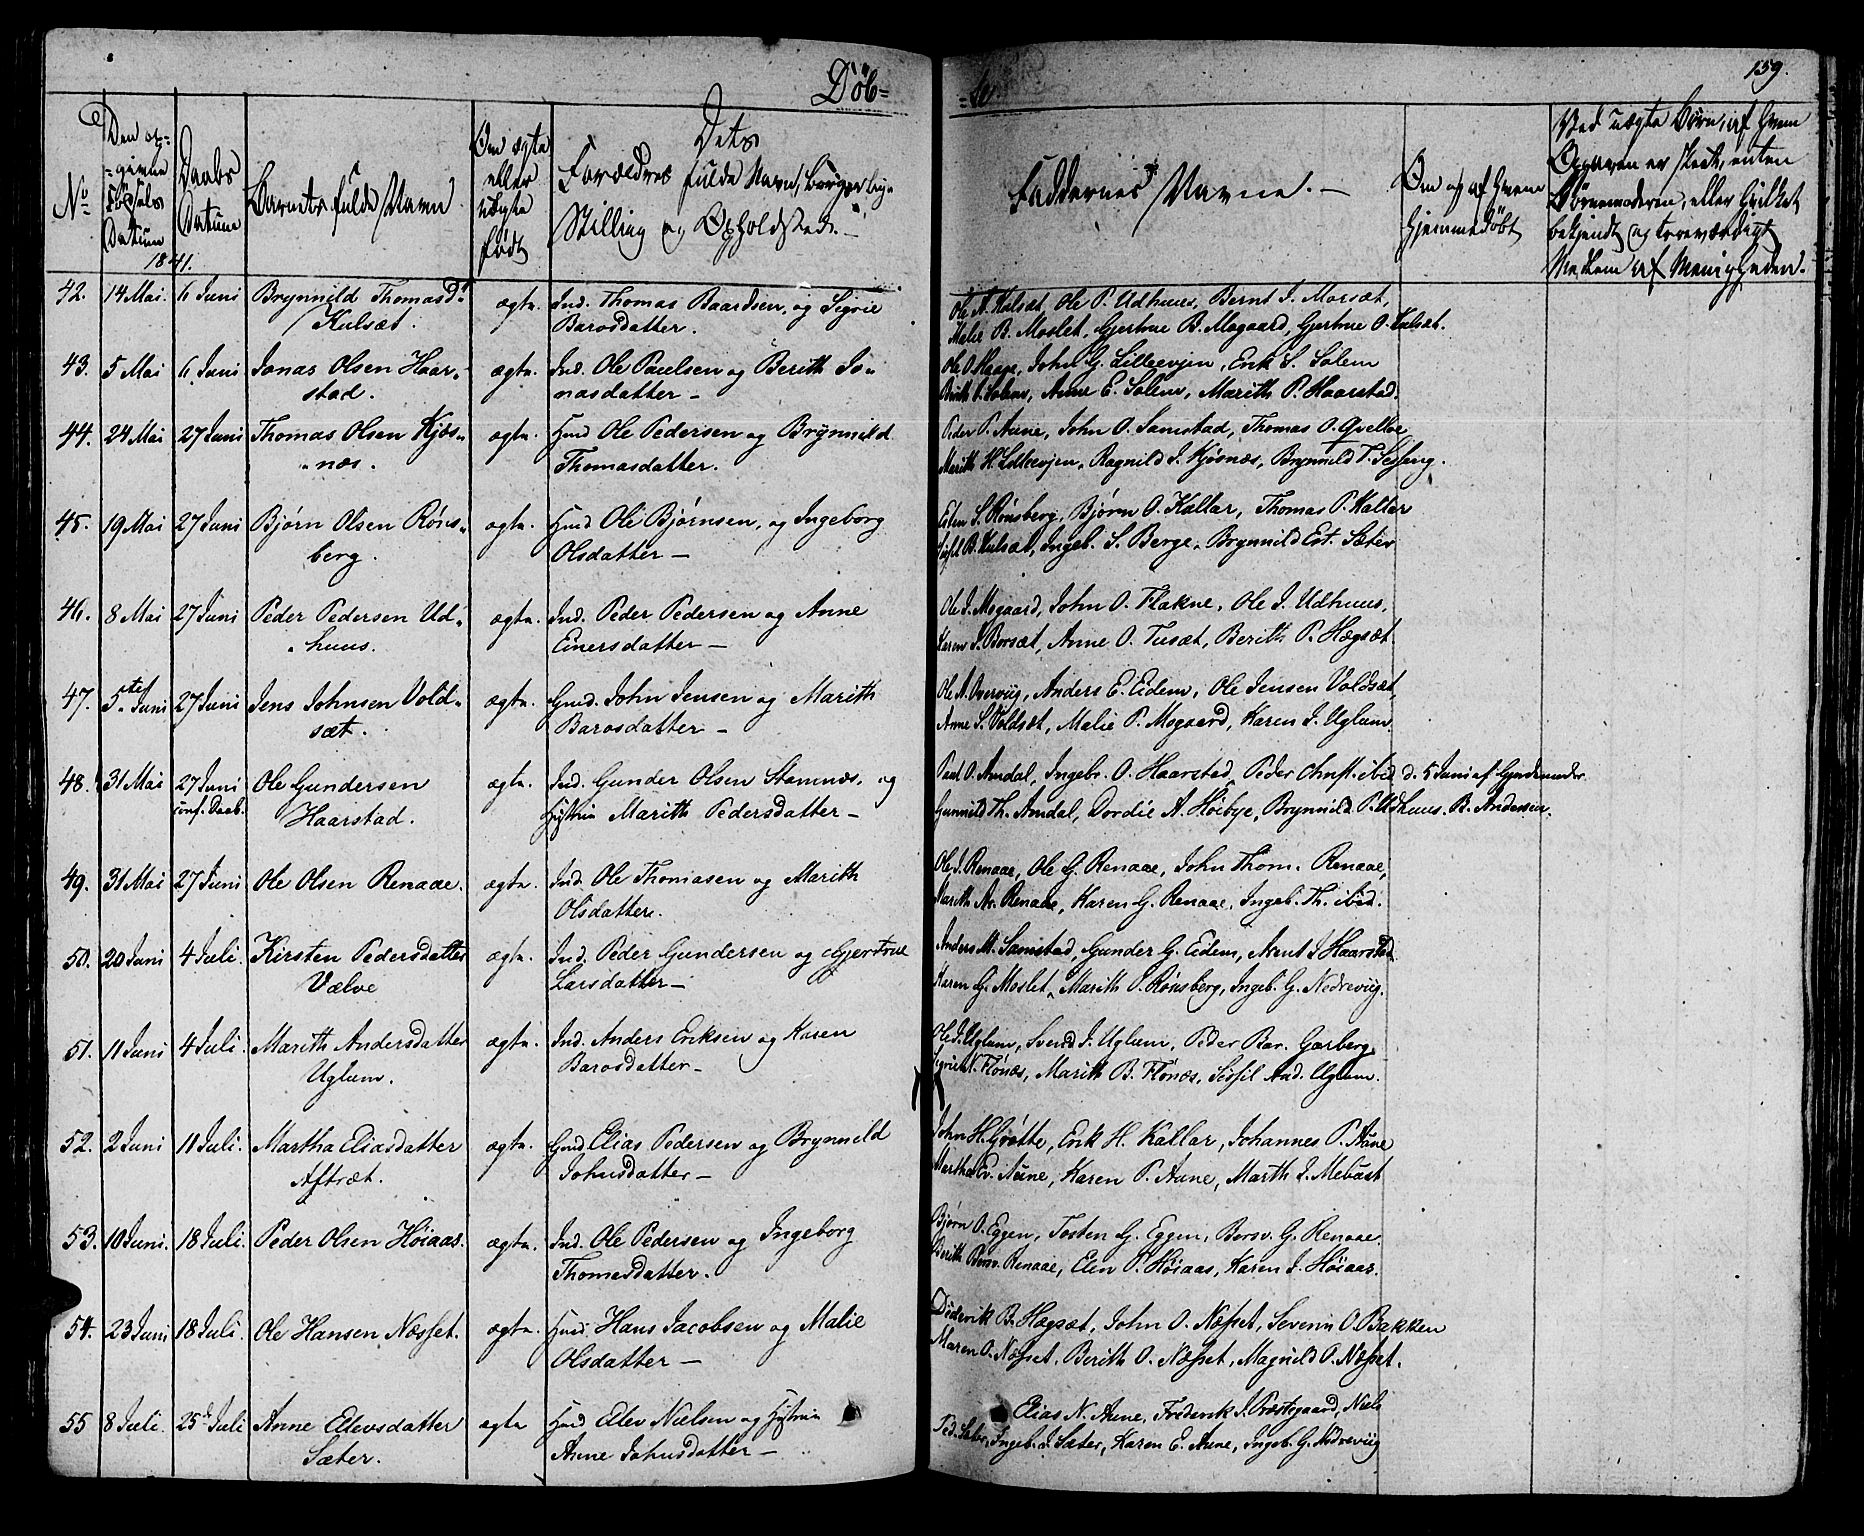 Døb=
=te
159.
No
Den op=
=givne
Fødsels
Datum
1841.
Daabs
Datum
Barnets fulde Navn
Om ægte
eller
uægte
født
Dets
Forældres fulde Navn, borgerlige
Stilling og Opholdsted.
Faddernes Navne.
Om og af hvem
hjemmedøbt
Ved uægte Børn, af hvem
Opgaven er skeet, enten
Børnemoderen, eller hvilket
bekjendt og troeværdigt
Medlem af Menigheden.
42. 14 Mai. 6 Juni Brynnild Thomasd.
Kulsæt.
ægte. Ind. Thomas Baardsen, og Sigrie
Barosdatter.
Ole A. Kulsæt, Ole P. Udhuus, Bernt J. Morsæt,
Malie B. Moslet, Gjertrue B. Mogaard, Gjertrue O. Kulsæt.
43. 5 Mai 6 Juni Jonas Olsen Haar=
stad.
ægte. Ind. Ole Paulsen og Berith Jo=
nasdatter –
Ole O. Hauge, John G. Lillevjen, Erik S. Solem
Birith J. Solem, Anne E. Solem, Marith P. Haarstad.
44. 24 Mai 27 Juni Thomas Olsen Kjøs=
=næs.
ægte. Huusd. Ole Pedersen og Brynnild
Thomasdatter.
Peder P. Aune, John O. Samstad, Thomas O. Qvelloe
Marith H. Lillevjen, Ragnild J. Kjøsnæs, Brynnild T. Sesseng.
45. 19 Mai 27 Juni Bjørn Olsen Røns=
berg.
ægte. Huusd. Ole Bjørnsen, og Ingeborg
Olsdatter –
Esten S. Rønsberg, Bjørn O. Kallar, Thomas P. Kallar
B. Kulsæt, Ingeb. S. Berge, Brynnild Est. Sæter
46. 8 Mai 27 Juni Peder Pedersen Ud=
=huus.
ægte. Ind. Peder Pedersen og Anne
Einersdatter –
Ole J. Mogaard, John O. Flakne, Ole J. Udhuus,
Karen J. Borsæt, Anne O. Tusæt, Berith P. Hægsæt.
47. 5te Juni 27 Juni Jens Johnsen Vold=
sæt.
ægte. Gmd. John Jensen og Marith
Barosdatter –
Ole A. Overviig, Anders E. Eidem, Ole Jensen Voldsæt,
Anne S. Voldsæt, Malie P. Mogaard, Karen J. Uglum.
48. 31 Mai 27 Juni
conf. Daab.
Ole Gundersen
Haarstad.
ægte. Ind. Gunder Olsen Stamnæs, og
Hustrue Marith Pedersdatter –
Paul O. Amdal, Ingebr. O. Haarstad, Peder Christ. ibid. d. 5 Juni af Gjordemoder
Gunnild Th. Amdal, Dordie A. Høibye, Brynnild P. Udhuus. B. Andersen.
49. 31 Mai 27 Juni Ole Olsen Renaae.
ægte. Ind. Ole Thomasen og Marith
Olsdatter.
Ole J. Renaae, Ole G. Renaae, John Thom. Renaae,
Marith Ar. Renaae, Karen G. Renaae, Ingeb. Th. ibid.
50. 20 Juni 4 Juli. Kirsten Pedersdatter
Vælve
ægte. Ind. Peder Gundersen og Gjertrue
Larsdatter –
Anders M. Samstad, Gunder G. Eidem, Arnt J. Haarstad.
Karen G. Moslet, Marith P. Rønsberg, Ingeb. G. Nedreviig.
51. 11 Juni 4 Juli. Marith Andersdatter
Uglum.
ægte. Ind. Anders Eriksen og Karen
Barosdatter –
Ole J. Uglum, Svend J. Uglum, Peder Bar. Garberg,
Sigrie N. Flønæs, Marith B. Flønæs, Sissil And. Uglum.
52. 2 Juni 11 Juli. Martha Eliasdatter
Aftræt.
ægte. Gmd. Elias Pedersen og Brynnild
Johnsdatter –
John H. Grøtte, Erik H. Kallar, Johannes P. Aune
Martha Ev. Aune, Karen P. Aune, Marth J. Mebust
53. 10 Juni. 18 Juli. Peder Olsen Høiaas.
ægte. Ind. Ole Pedersen og Ingeborg
Thomasdatter.
Bjørn O. Eggen, Tosten G. Eggen, Bersv. G. Renaae.
Berith Bersv. Renaae, Elen P. Høiaas, Karen J. Høiaas.
54. 23 Juni 18 Juli. Ole Hansen Næsset.
ægte. Huusd. Hans Jacobsen og Malie
Olsdatter –
Diderik B. Hægsæt, John O. Næsset, Severin O. Bakken
Maren O. Næsset, Berith O. Næsset, Magnild O. Næsset.
55 8 Juli. 25d Juli Anne Ellevsdatter
Sæter.
ægte Huusd. Ellev Nielsen og Hustrue
Anne Johnsdatter –
Elias N. Aune, Frederik J. Præstegaard, Niels
Ped. Sæter, Ingeb. J. Sæter, Karen E. Aune, Ingeb. G. Nedreviig